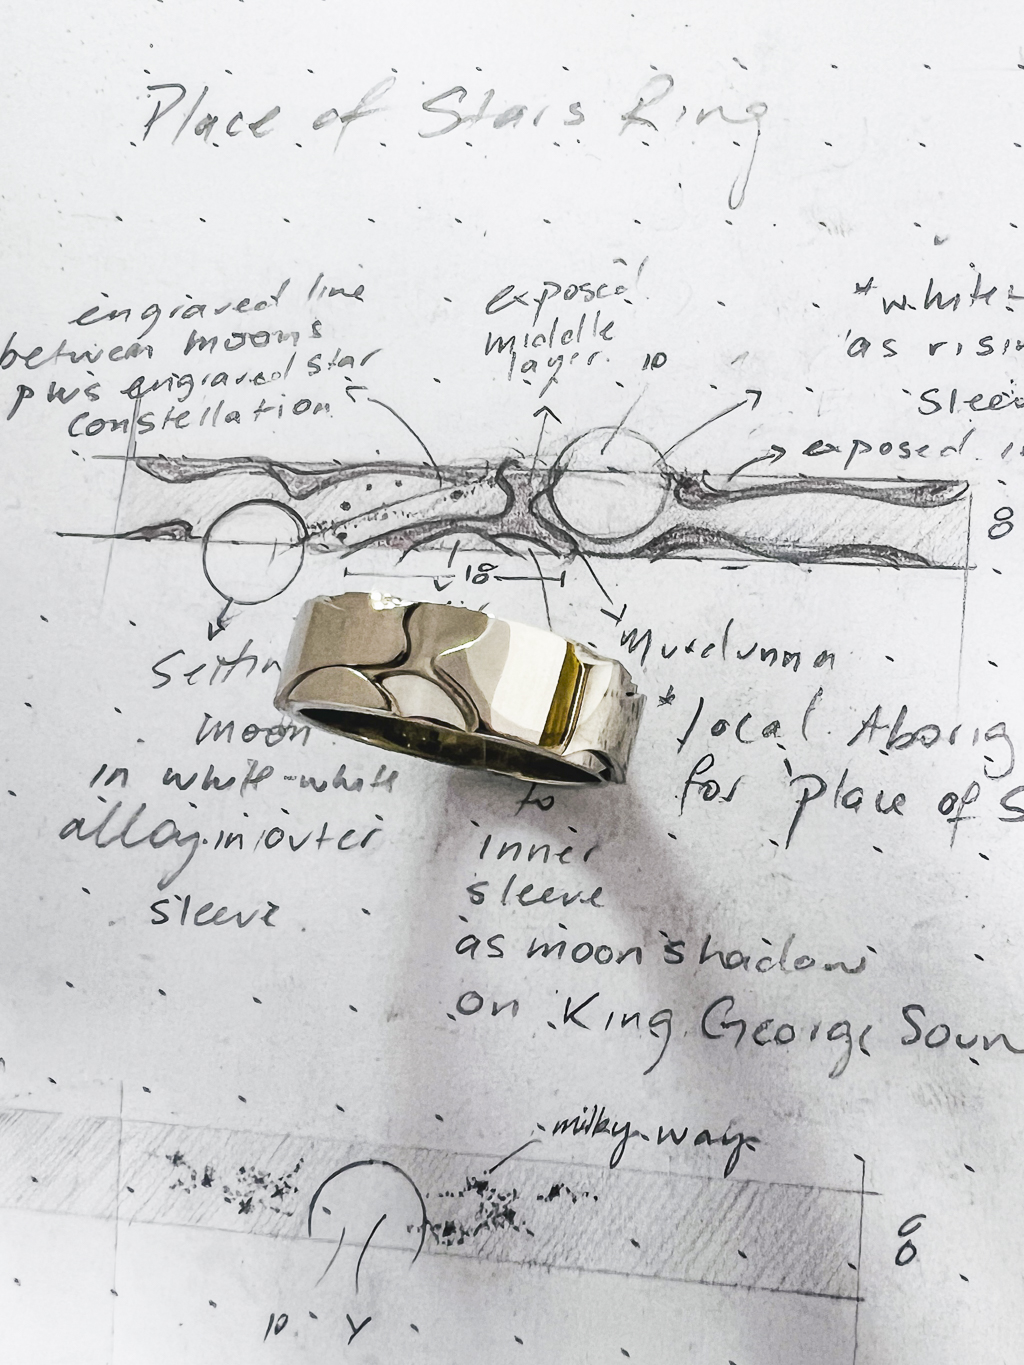 Place of Stars Ring
engraved line
between moons
plus engraved star
constellation
exposed
middle
layer.
10
*white-
as risin
Sleev
exposed in
8
18
Murdunna
*local Aborig
for place of S
Settin
moon
in white-white
alloy in outer
sleeve
to
inner
sleeve
as moon's hadow
on King George Soun
milky way
8
10 Y